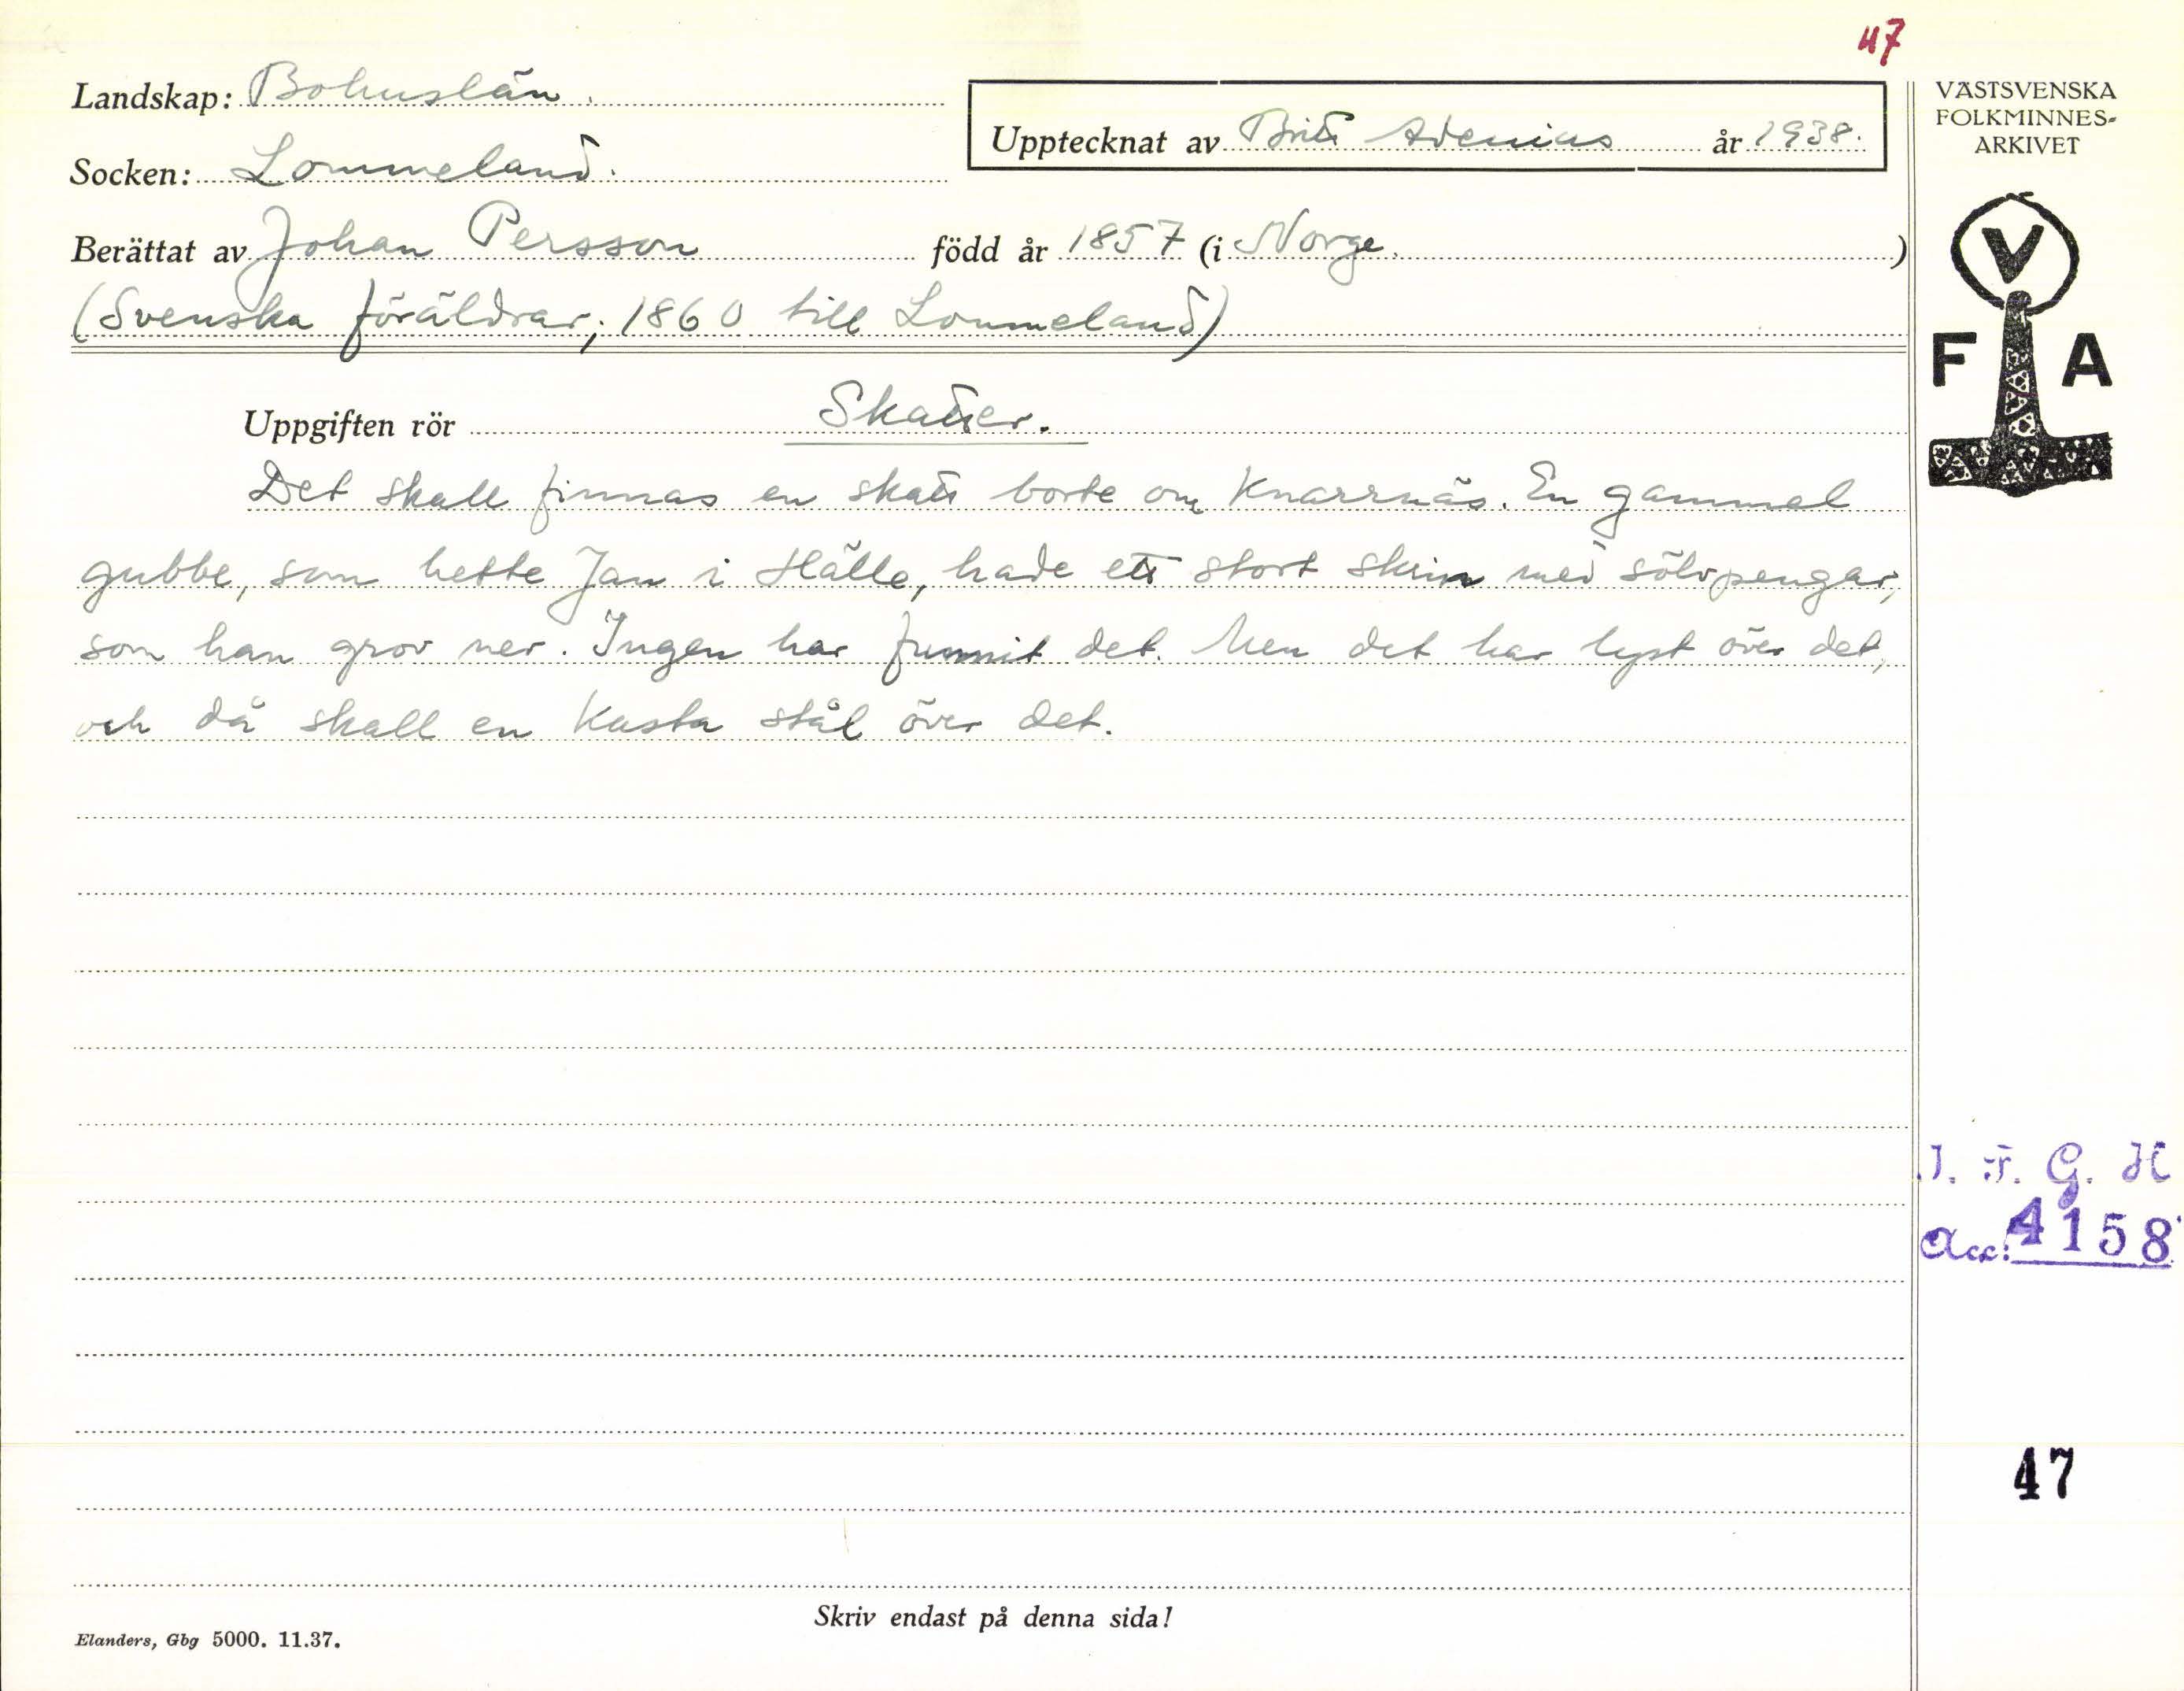 47
Landskap: Bohuslän.
Upptecknat av Britt Adenius år 1938.
Socken: Lommeland.
Berättat av Johan Persson född år 1857 (i Norge.)
(Svenska föräldrar; 1860 till Lommeland)
Uppgiften rör Skatter.
Det skall finnas en skatt borte om Knarrnäs. En gammal
gubbe, som hette Jan i Hälle, hade ett stort skrin med sölvpengar,
som han grov ner. Ingen har funnit det. Men det har lyst över det,
och då skall en kasta stål över det.
Skriv endast på denna sida!
Elanders, Gbg 5000. 11.37.
VÄSTSVENSKA
FOLKMINNES-
ARKIVET
V
F A
I. F. G. H
Acc: 4158
47